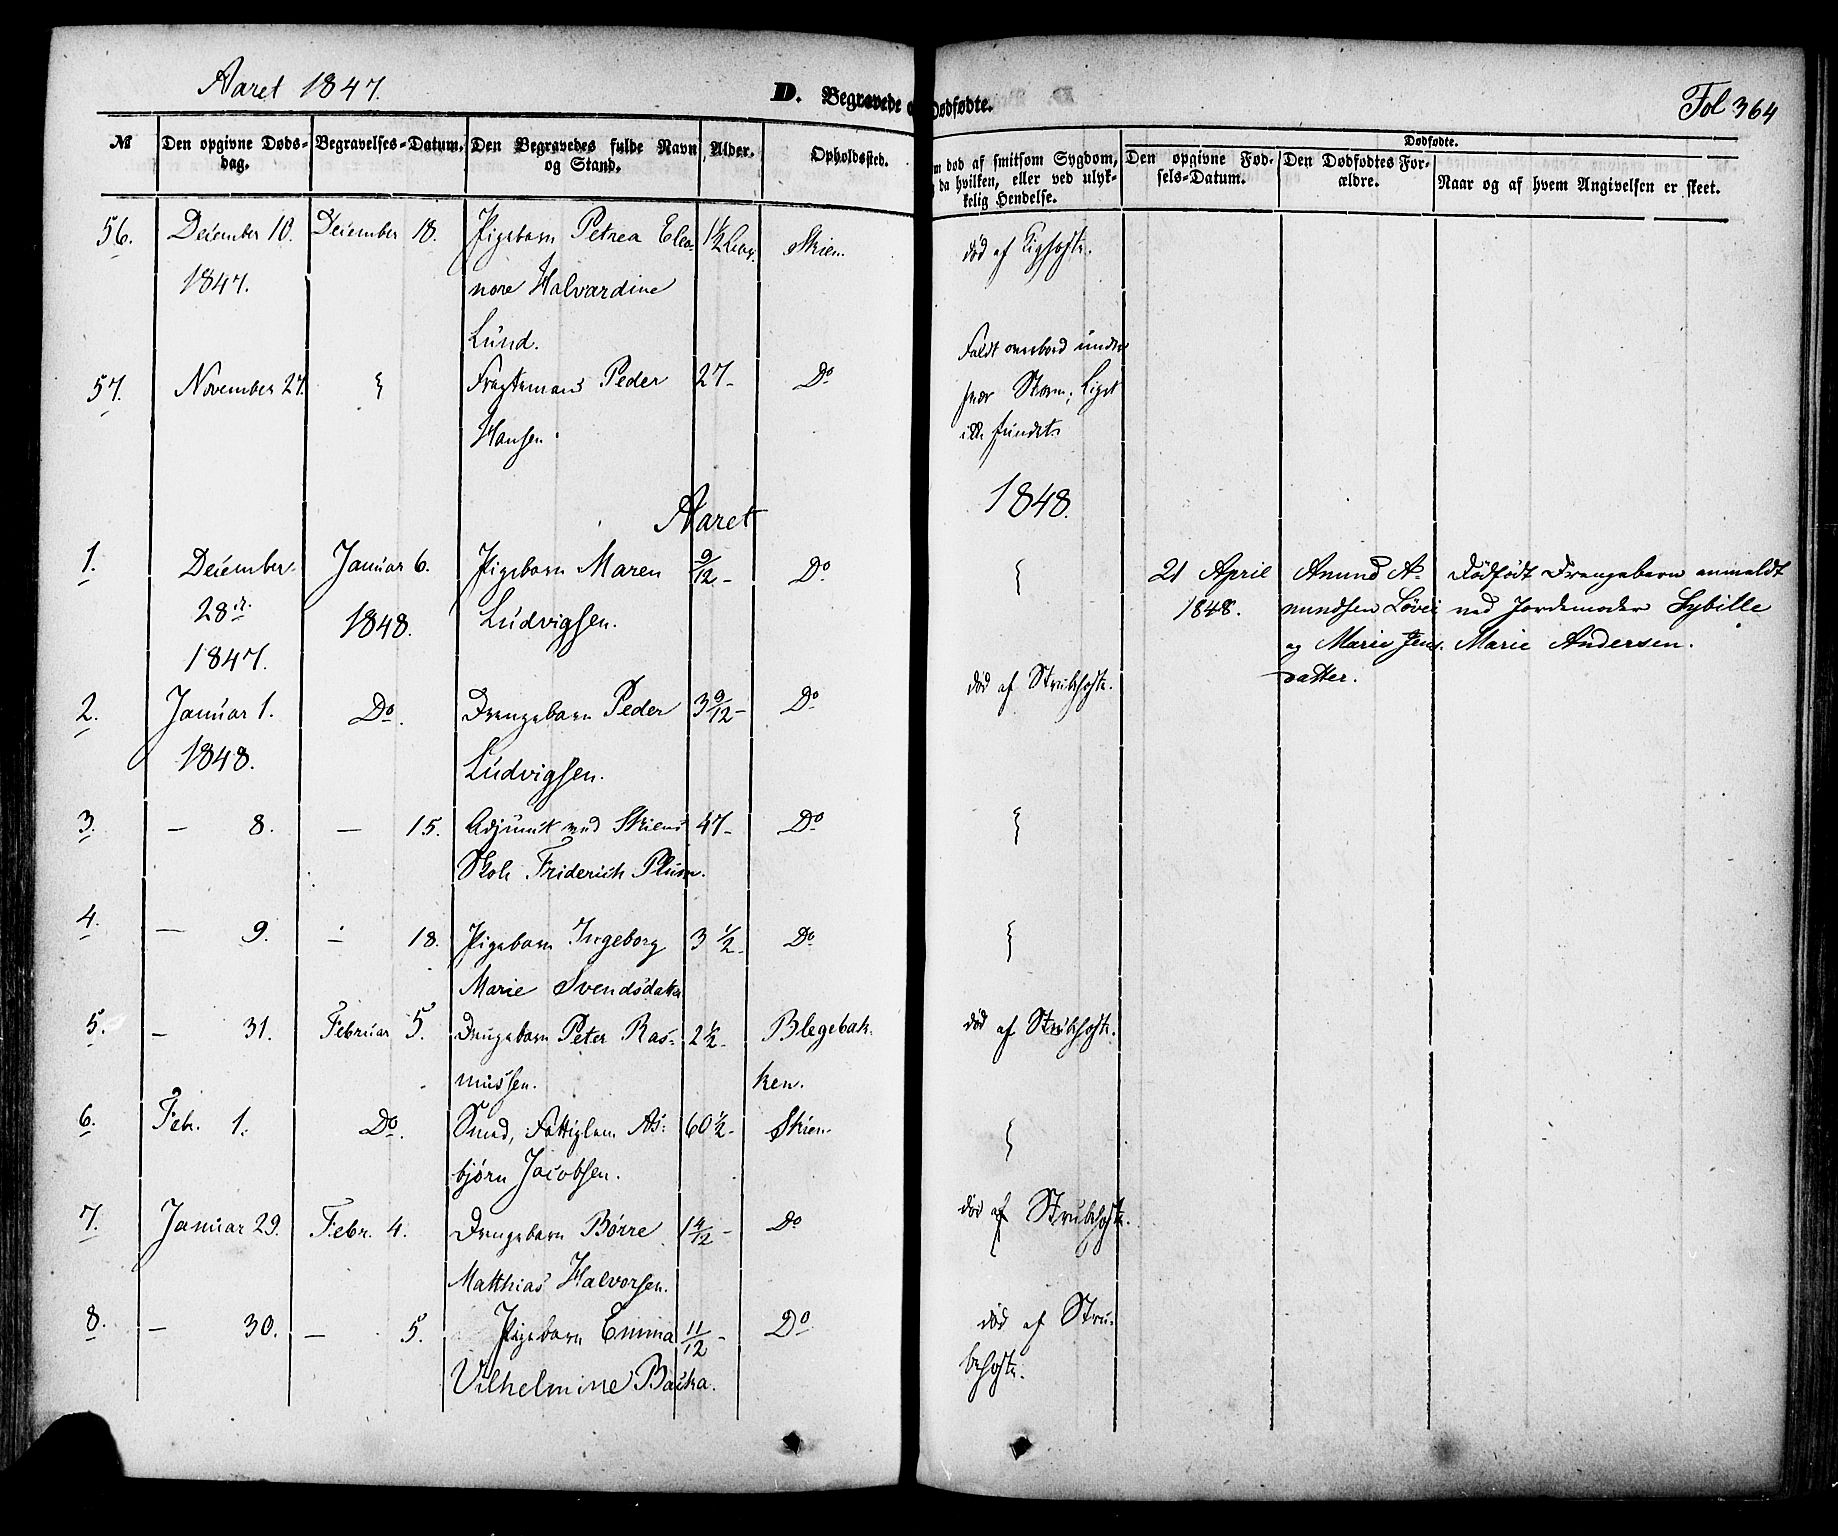 Aaret 1847.
D. Begravede o Dødfødte.
Fol 364
№
Den opgivne Døds-
dag.
Begravelses-Datum.
Den Begravedes fulde Navn
og Stand.
Alder.
Opholdssted.
m død af smitsom Sygdom,
da hvilken, eller ved ulyk-
kelig Hendelse.
Dødfødte.
Den opgivne Fød-
sels-Datum.
Den Dødfødtes For-
ældre.
Naar og af hvem Angivelsen er skeet.
56. December 10. December 18. Pigebarn Petrea Eleo- 1½ Skien.
1847. nore Halvardine
Lund.
død af Kighoste.
57. November 27. Peder 27- Do
Hansen.
Faldt overbord under
svær Storm; Liget
ikke fundet.
Aaret 1848.
1. December Januar 6. Pigebarn Maren 9/12- Do
28de 1848. Ludvigsen.
1847.
21 April Amund A- Dødfødt Drengebarn anmeldt
1848. mundsen ved Jordemoder Sybille
og Marie Jens- Marie Andersen.
datter.
2. Januar 1. Do. Drengebarn Peder 3 9/12- Do
1848. Ludvigsen.
død af Strubehoste.
3. — 8. — 15. Adjunkt ved Skiens 47- Do
Skole Friderich Plum.
4. — 9. — 18. Pigebarn Ingeborg 3 ½- Do
Marie Svendsdatter
5. — 31. Februar 5. Drengebarn Peter Ras- 2½- Blegebak-
mussen. ken.
død af Strubehoste.
6. Febr. 1. Do. Smed, Fattiglem As- 60½- Skien
bjørn Jacobsen.
7. Januar 29. Febr. 4. Drengebarn Børre 1 4/12- Do
Matthias Halvorsen.
død af Strubehoste.
8. — 30. — 5. Pigebarn Emma 11/12- Do
Vilhelmine
død af Stru-
behoste.